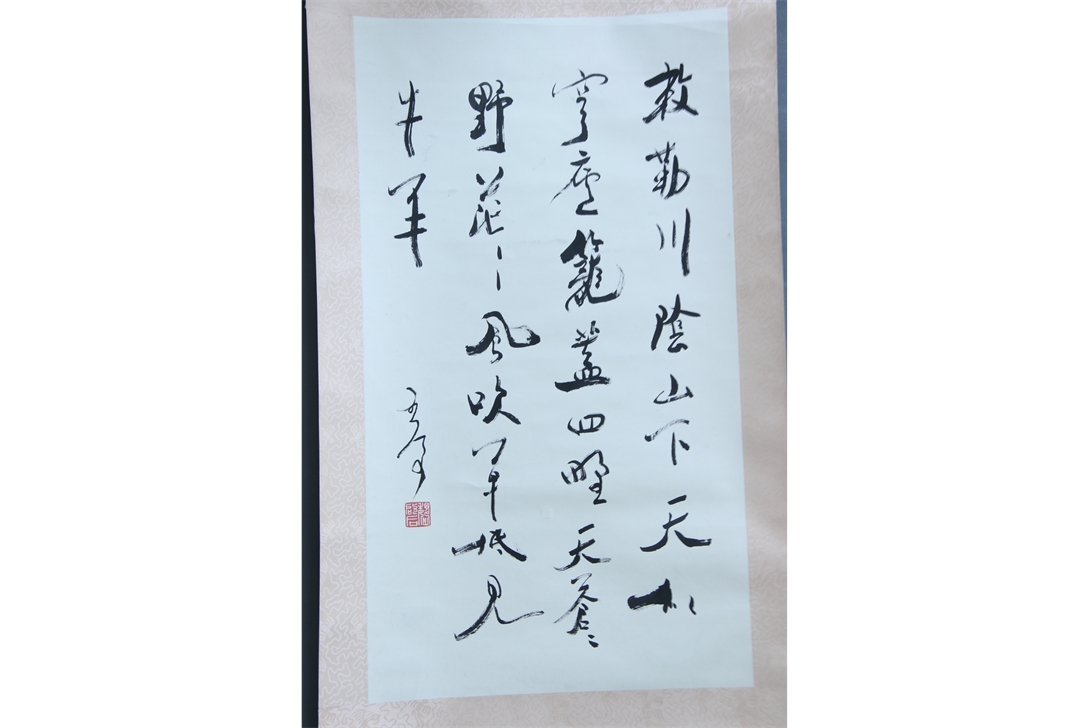 敕勒川陰山下天似
穹廬籠蓋四野天蒼〻
野茫〻風吹草低見
牛羊